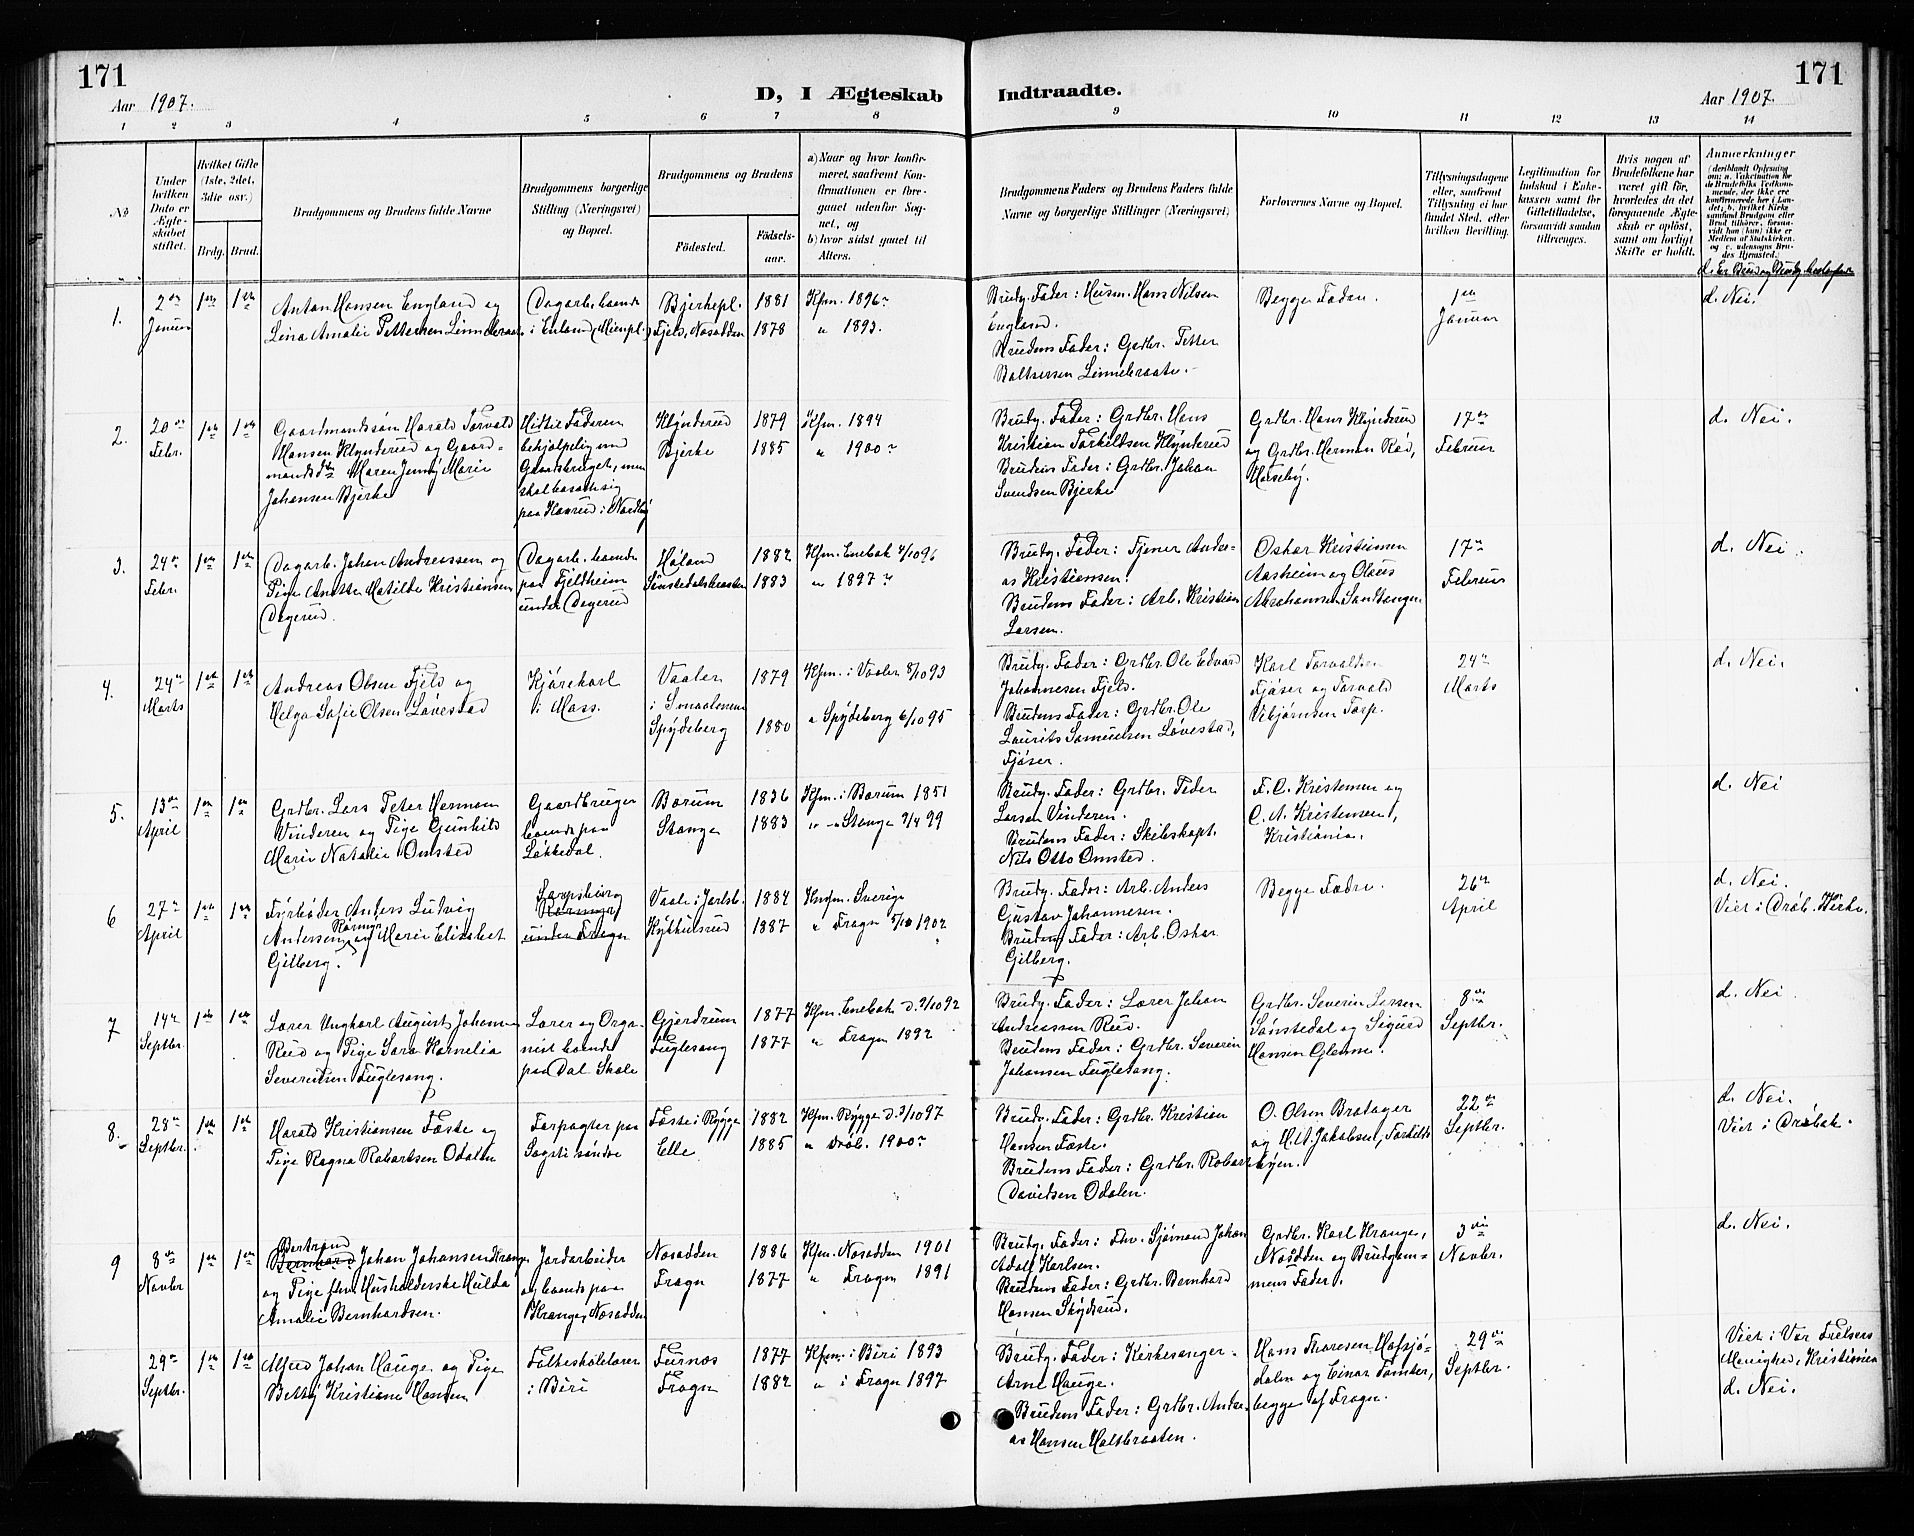 171
Aar 1907.
D, I Ægteskab
Indtraadte.
171
Aar 1907.
1 2 3 4 5 6 7 8 9 10 11 12 13 14
No
Under hvilken Dato er Ægteskabet stiftet.
Hvilket Gifte (1ste, 2det, 3die osv.)
Brdg. Brud.
Brudgommens og Brudens fulde Navne
Brudgommens borgerlige Stilling (Næringsvei) og Bopæl.
Brudgommens og Brudens
Födested.
Födselsaar.
a) Naar og hvor konfirmeret, saafremt Konfirmationen er foregaaet udenfor Sognet, og
b) hvor sidst gaaet til Alters.
Brudgommens Faders og Brudens Faders fulde Navne og borgerlige Stillinger (Næringsvei)
Forlovernes Navne og Bopæl.
Tillysningsdagene eller, saafremt Tillysning ei har fundet Sted, efter hvilken Bevilling.
Legitimation for Indskud i Enkekassen samt for Giftetilladelse, forsaavidt saadan tiltrænges.
Hvis nogen af Brudefolkene har været gift för, hvorledes da det foregaaende Ægteskab er oplöst, samt om lovligt Skifte er holdt.
Anmærkninger
(deriblandt Oplysning om: a. Vakcination for de Brudefolks Vedkommende, der ikke ere konfirmerede her i Landet; b. hvilket Kirkesamfund Brudgom eller Brud tilhörer, forsaavidt han (hun) ikke er Medlem af Statskirken, og c. udensogns Brudes Hjemsted.
1.
2den Januar
1ste 1ste
Anton Hansen England og
Lina Amalie Pettersen Linnebraaten
Dagarb. boende
i Enland (Mienpl.)
Bjerkepl. 1881 Kfm. 1896
Fjeld, Nesodden 1878 " 1893.
Brudg. Fader: Husm. Hans Nilsen
England.
Brudens Fader: Grdbr. Petter
Baltsersen Linnebraate.
Begge Fædre.
1ste
Januar
d. Nei.
2.
20de Febr.
1ste 1ste
Gaardmandssøn Harald Torvald
Hansen Klynderud og Gaard=
mandsdtr Maren Jenny Marie
Johansen Bjerke
Hidtil Faderen
behjælpelig med
Gaardsbruget, men
skal bosætte sig
paa Haurud i Nordby
Klynderud 1879 Kfm. 1894
Bjerke 1885 " 1900
Brudg. Fader: Grdbr. Hans
Kristian Torkildsen Klynderud
Brudens Fader: Grdbr. Johan
Svendsen Bjerke
Grdbr. Hans Klynderud
og Grdbr. Herman Rød,
Huseby.
17de
Februar
d. Nei.
3.
24de Febr.
1ste 1ste
Dagarb. Johan Andreassen og
Pige Anette Matilde Kristiansen
Dagerud.
Dagarb. boende
paa Fjeldheim
under Dagerud
Høland 1882 Kfm. Enebak 4/10 96
Sønstedalsbraaten 1883 " 1897
Brudg. Fader: Tjener Andre=
as Kristiansen.
Brudens Fader: Arb. Kristian
Larsen.
Oskar Kristiansen
Aasheim og Olaus
Abrahamsen Sandtangen
17de
Februar
d. Nei.
4.
24de Marts
1ste 1ste
Andreas Olsen Fjeld og
Helga Sofie Olsen Løvestad
Kjørekarl
i Moss.
Vaaler
i Smaalenene 1879 Kfm. i Vaaler 8/10 93
Spydeberg 1880 " Spydeberg 6/10 95
Brudg. Fader: Grdbr. Ole Edvard
Johannesen Fjeld.
Brudens Fader: Grdbr. Ole
Laurits Samuelsen Løvestad,
Fjøser.
Karl Torvaldsen
Fjøser og Torvald
Vebjørnsen Torp.
24de
Marts
d. Nei.
5.
13de April
1ste 1ste
Grdbr. Lars Peter Herman
Vinderen og Pige Gunhild
Marie Natalie Omsted
Gaardbruger
boende paa
Løkkedal.
Bærum 1836 Kfm. i Bærum 1851
Stange 1883 " Stange 9/4 99
Brudg. Fader: Grdbr. Peder
Larsen Vinderen.
Brudens Fader: Skibskapt.
Nils Otto Omsted.
F. C. Kristensen og
C. A. Kristensen,
Kristiania.
d. Nei
6
27de April
1ste 1ste
Fyrbøder Anders Ludvig
Andersen Rørmyr og Marie Elisabet
Gilberg.
Sarpsborg
Rørmyr
under Frogn
Vaale i Jarlsb. 1884 Konfm. Sverige
Kjøthulsrud 1887 " Frogn 5/10 1902
Brudg. Fader: Arb. Anders
Gustav Johannesen.
Brudens Fader: Arb. Oskar
Gilberg.
Begge Fædre.
26de
April
d. Nei.
Viet i Drøb. Kirke.
7
14de Septbr.
1ste 1ste
Lærer Ungkarl August Johansen
Rud og Pige Sara Kornelia
Severinsen Fuglesang.
Lærer og Orga=
nist boende
paa Dal Skole
Gjerdrum 1877 Kfm. Enebak d. 2/10 92
Fuglesang 1877 " Frogn 1892
Brudg. Fader: Lærer Johan
Andreassen Rud.
Brudens Fader: Grdbr. Severin
Johansen Fuglesang.
Grdbr. Severin Larsen
Sønstedal og Sigurd
Hansen Glenne.
8de
Septbr.
d. Nei
8.
28de Septbr.
1ste 1ste
Harald Kristiansen Fæste og
Pige Ragna Robertsen Odalen
Forpagter paa
Sogsti søndre
Fæste i Rygge 1882 Kfm. Rygge d. 3/10 97
Elle 1885 " Drøb. 1900
Brudg. Fader: Grdbr. Kristian
Hansen Fæste.
Brudens Fader: Grdbr. Robert
Davidsen Odalen.
O. Olsen Bratager
og H. A. Jakobsen, Torkilds
byen.
22de
Septbr.
d. Nei.
Viet i Drøbak.
9
8de Novbr
1ste 1ste
Bertrand
Bernhard Johan Johansen Krange
og Pige fhv. Husholderske Hulda
Amalie Bernhardsen.
Jordarbeider
og boende paa
Krange, Nesodden
Nesodden 1886 Kfm. Nesodden 1901
Frogn 1877 " Frogn 1891
Brudg. Fader: Fhv. Sjømand Johan
Adolf Karlsen.
Brudens Fader: Grdbr. Bernhard
Hansen Skydsrud.
Grdbr. Karl Krange,
Nesodden og Brudgom=
mens Fader.
3die
Novbr.
d. Nei.
29de Septbr.
1ste 1ste
Alfred Johan Hauge og Pige
Betty Kristiane Hansen
Folkeskolelærer
i Biri
Furnes 1877 Kfm. i Biri 1893
Frogn 1882 " i Frogn 1897
Brudg. Fader: Kirkesanger
Arne Hauge.
Brudens Fader: Grdbr. Andre=
as Hansen Holtbraaten.
Hans Thoresen Hafsjø=
dalen og Einar Tomter,
begge af Frogn.
29de
Septbr.
Viet i Vor Frelsers
Menighed, Kristiania
d. Nei.